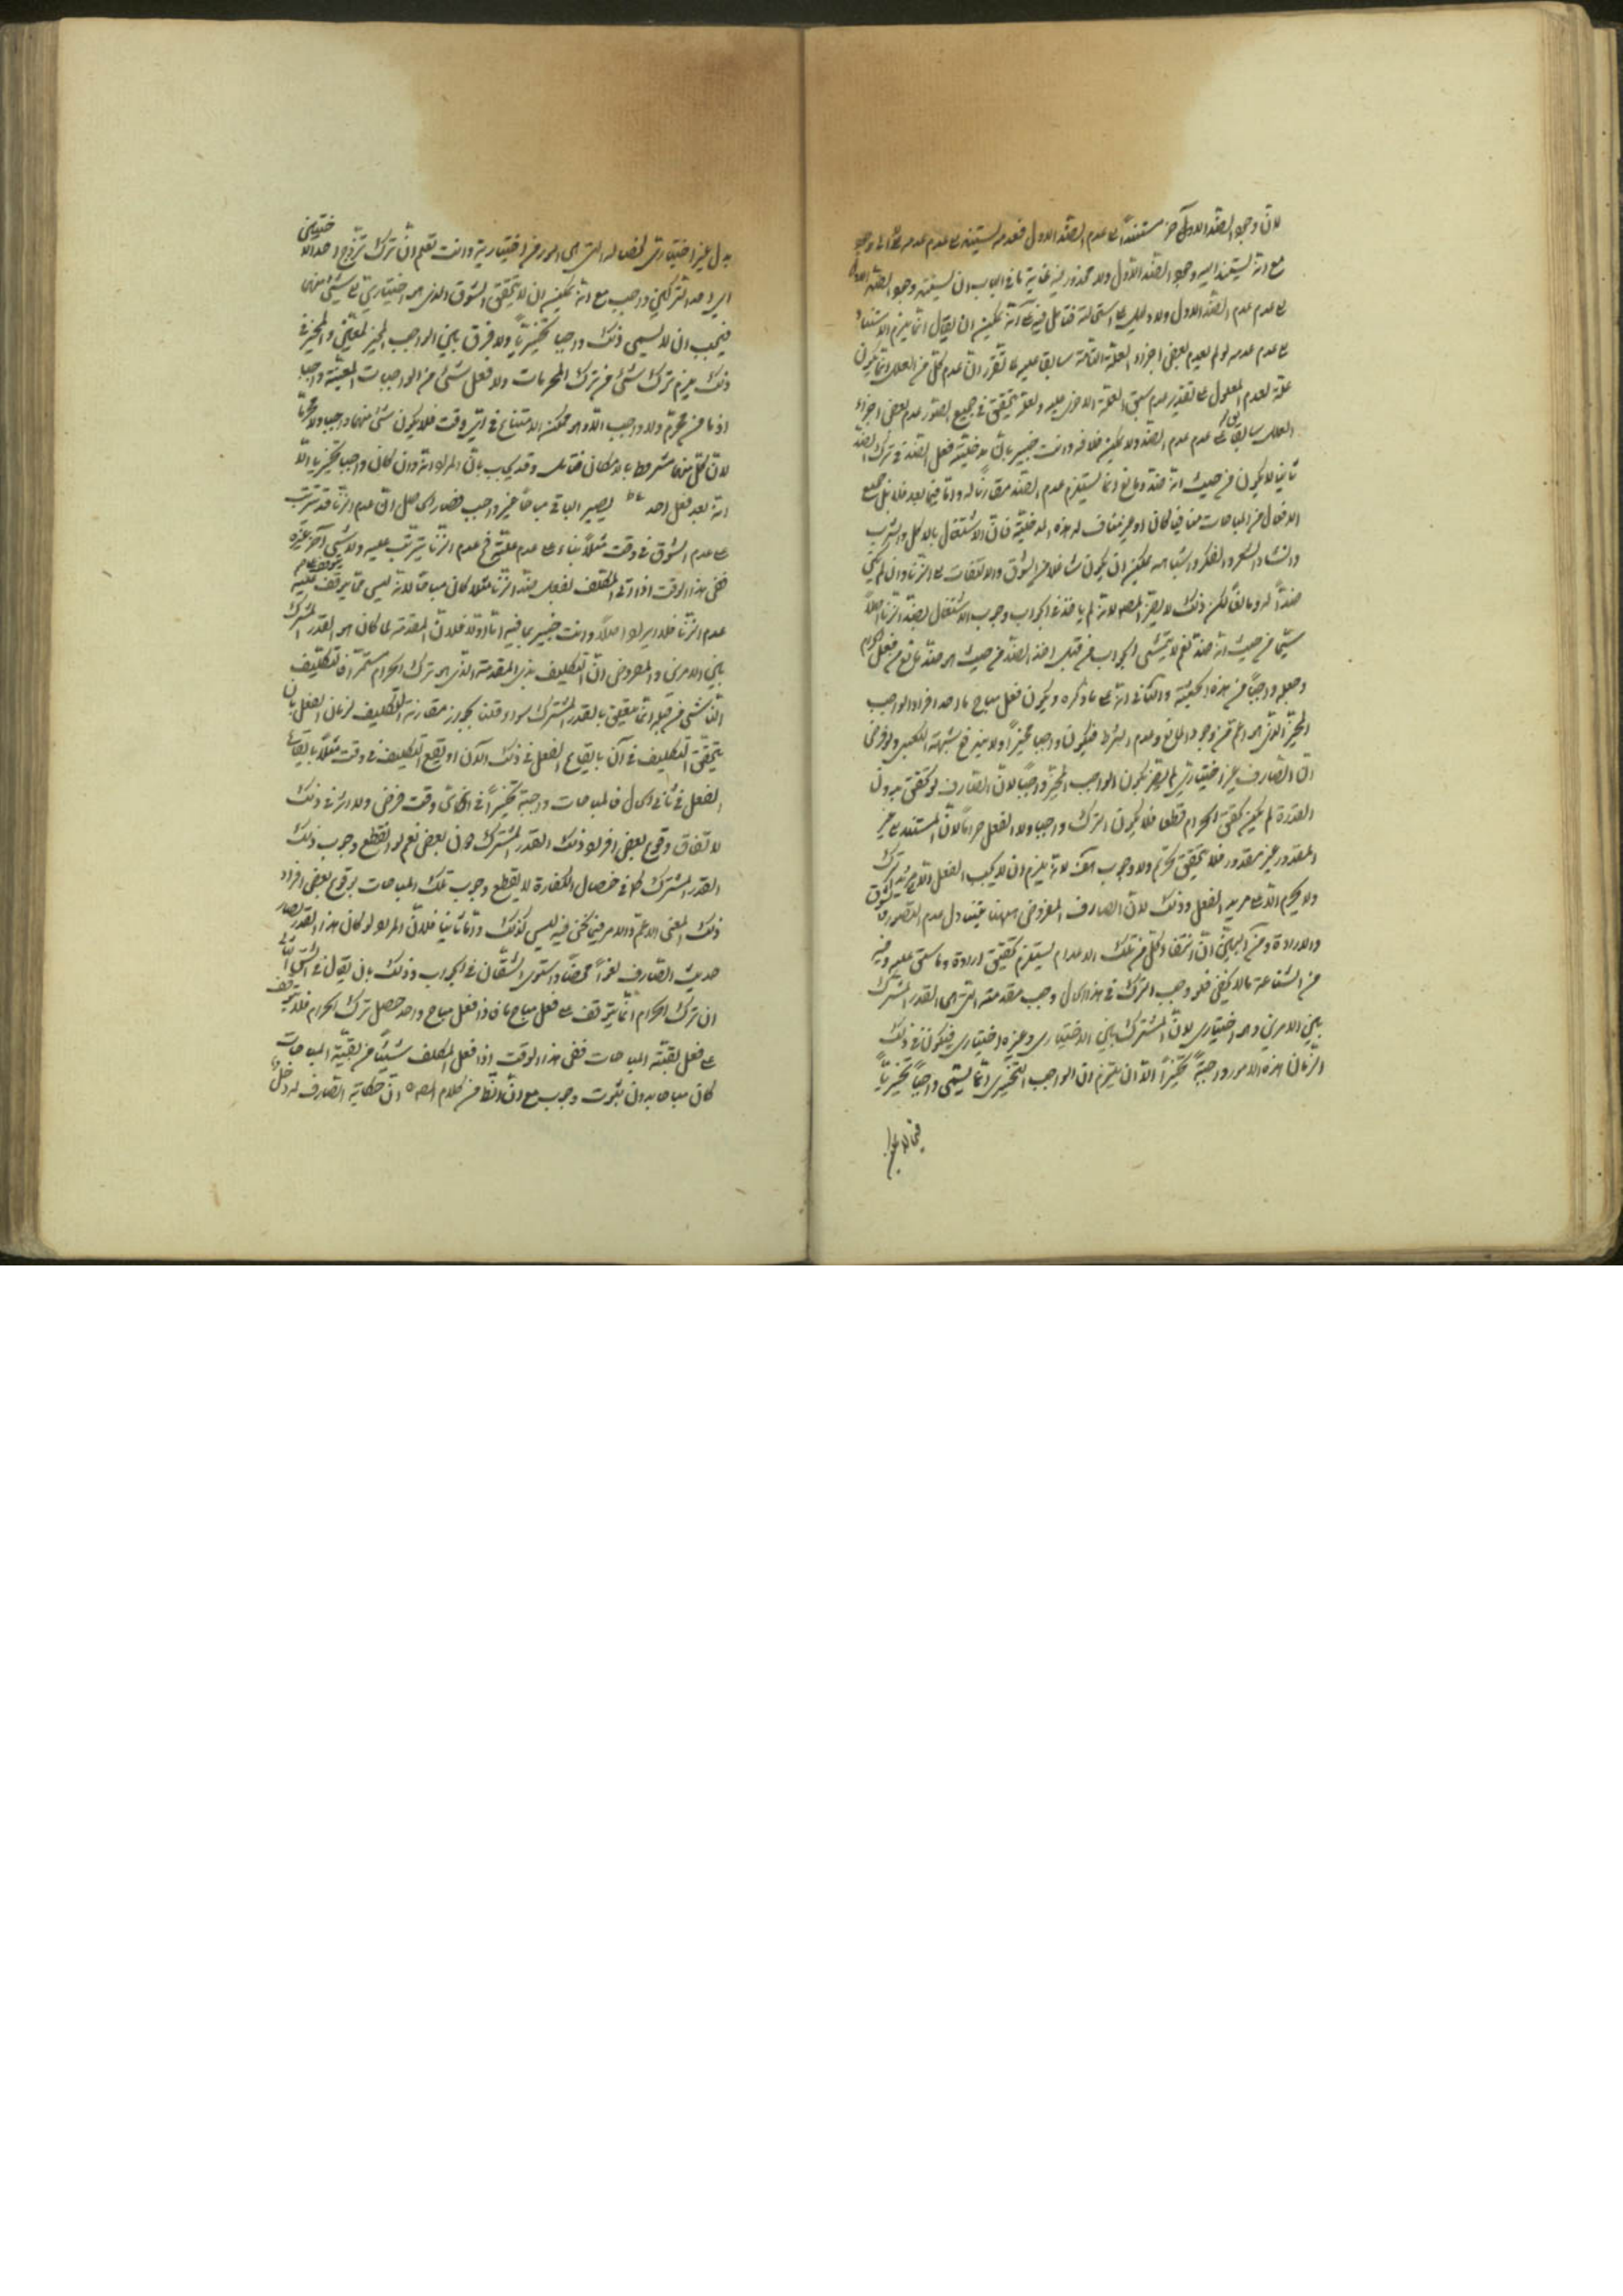 لان وجود الضد الاول آخر مستندا على عدم الضد الاول فعدمه يستند على عدم عدمه
مع انه يستند اليه وجود الضد الاول ولا محذور فيه غاية ما في الباب ان يستند وجود الضد الاول
على عدم عدم الضد الاول ولا دليل على استحالته فتامل فيه على انه يمكن ان يقال انما يلزم الاستناد
على عدم عدمه لو لم يعدم بعض اجزاء العلة التامة سابقا عليه لما تقرر ان عدم كل من العلل انما يكون
علة لعدم المعلول على تقدير عدم سبق العلة الاخرى عليه ولعله يتحقق في جميع الصور عدم بعض اجزاء
العلل سابقا على عدم عدم الضد ولا يمكن خلافه وانت خبير بان مدخلية فعل الضد في ترك الضد
ثانيا لا يكون من حيث انه ضد ومانع انما يستلزم عدم الضد مقارنا له واما فيما بعد فلا بل جميع
الافعال من المباحات منافيا كان او غير مناف له هذه المدخلية فان الاشتغال بالاكل والشرب
وانشاد الشعر والفكر واشباهه يمكن ان يكون شاغلا من الشوق والالتفات على الزنا وان لم يكن
ضدا له ومانعا لكن ذلك لا يضر المص لانه لم ياخذ في الجواب وجوب الاشتغال بضد الزنا اصلا
سيما من حيث انه ضد نعم لا يتمشى الجواب من قبل اخذ الضد من حيث هو ضد مانع من فعل الحرام
وجعله واجبا من هذه الحيثية والثاني انه على ما ذكره ويكون فعل مباح ما احد افراد الواجب
المخير الذي هو اعم من وجود المانع وعدم الشرط فيكون واجبا مخيرا ولا يندفع شبهة الكعبي ولو فرض
ان الصارف غير اختياري لم يضر بكون الواجب المخير واجبا لان الصارف لو تحقق بدون
القدرة لم يمكن تحقق الحرام قطعا فلا يكون الترك واجبا ولا الفعل حراما لان المستند على غير
المقدور غير مقدور فلا يتحقق تحريم ولا وجوب لانه يلزم ان لا يجب الفعل الا على مريد ترك
ولا يحرم الا على مريد الفعل وذلك لان الصارف المفروض ههنا يتناول عدم التصور والشوق
والارادة ومن البين ان انتفاء كل من تلك الاعدام يستلزم تحقق ارادة وما سبق عليه وفيه
من الشناعة ما لا يخفى فلو وجب الترك في هذه الحال وجب مقدمته التي هي القدر المشترك
بين الامرين وهو اختياري لان المشترك بين الاختياري وغيره اختياري فيكون في ذلك
الزمان هذه الامور واجبة تخييرا الا ان يلتزم ان الواجب التخييري انما يسمى واجبا تخييريا
بدل غير اختياري لفضا له التي هي امور غير اختيارية وانت تعلم ان ترك تزوج احد الاختين
اي احد التركين واجب مع انه يمكن ان لا يتحقق الشوق الذي هو اختياري في شيء منهما
فيجب ان لا يسمى ذلك واجبا تخييريا ولا فرق بين الواجب المخير المعين والمخير في
ذلك يلزم ترك شيء من ترك المحرمات ولا فعل شيء من الواجبات المعينة واجبا
اذ ما من محرم ولا واجب الا وهو ممكن الامتناع في اي وقت فلا يكون شيء منهما واجبا ولا محرما
لان كل منهما مشروط بالامكان فتامل وقد يجب بان المراد انه وان كان واجبا تخييريا الا
انه بعد فعل احدها يصير الباقي مباحا غير واجب فصار الحاصل ان عدم الزنا قد يترتب
على عدم الشوق في وقت مثلا بناء على عدم علته فح عدم الزنا يترتب عليه ولا شيء آخر غيره
ففي هذا الوقت اذا اتى المكلف لفعل ضد الزنا مثلا كان مباحا لانه ليس مما يتوقف عليه
عدم الزنا فلا ايراد اصلا وانت خبير بما فيه اما اولا فلان المقدمة لما كان هو القدر المشترك
بين الامرين والمفروض ان التكليف بذي المقدمة الذي هو ترك الحرام مستمر فالتكليف
الناشي من قبله انما يتعلق بالقدر المشترك سواء قلنا بجواز مقارنة التكليف لزمان الفعل بان
يتحقق التكليف في آن بايقاع الفعل في ذلك الآن او يقع التكليف في وقت مثلا بايقاع
الفعل في ثاني الحال فالمباحات واجبة تخييرا في اي وقت فرض ولا اثر في ذلك
لاتفاق وقوع بعض افراد ذلك القدر المشترك كان بعض نعم لو انقطع وجوب ذلك
القدر المشترك كما في خصال الكفارة لا يقطع وجوب تلك المباحات بوقوع بعض افراد
ذلك المعنى الاعم والامر فيما نحن فيه ليس كذلك واما ثانيا فلان المراد لو كان هذا القدر لصار
حديث الصارف لغوا محضا واستوى الشقان في الجواب وذلك بان يقال في الشق الثاني
ان ترك الحرام انما يتوقف على فعل مباح ما فاذا فعل مباح واحد حصل ترك الحرام فلا يتوقف
على فعل بقية المباحات ففي هذا الوقت اذا فعل المكلف شيئا من بقية المباحات
كان مباحا بدون ثبوت وجوب مع ان الظ من كلام المص ان حكاية الصارف له دخل